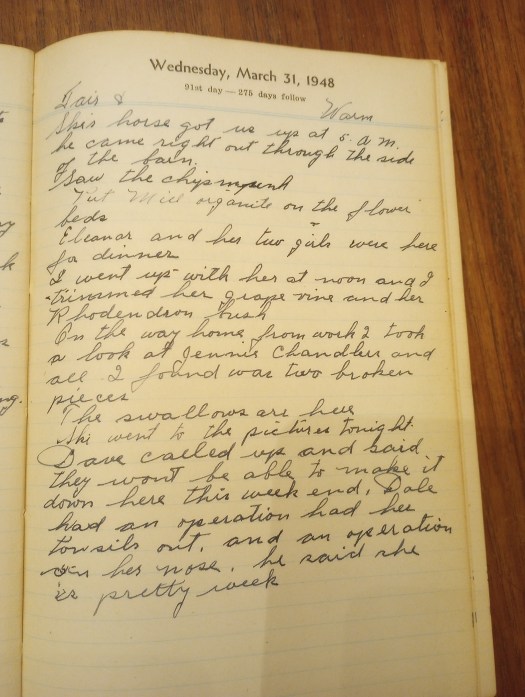 Wednesday, March 31, 1948
91st day — 275 days follow
Fair & Warm
Skis horse got us up at 5. a.m.
he came right out through the side
of the barn.
I saw the chipmunk
Put organite on the flower
beds
Eleanor and her two girls were here
for dinner
I went up with her at noon and I
trimmed her grape vine and her
Rhodendron bush
On the way home from work I took
a look at Jennie Chandlers and
all I found was two broken
pieces
The swallows are here
Ski went to the pictures tonight.
Dave called up and said
they wont be able to make it
down here this week end, Dale
had an operation had her
tonsils out, and an operation
on her nose, he said she
is pretty week